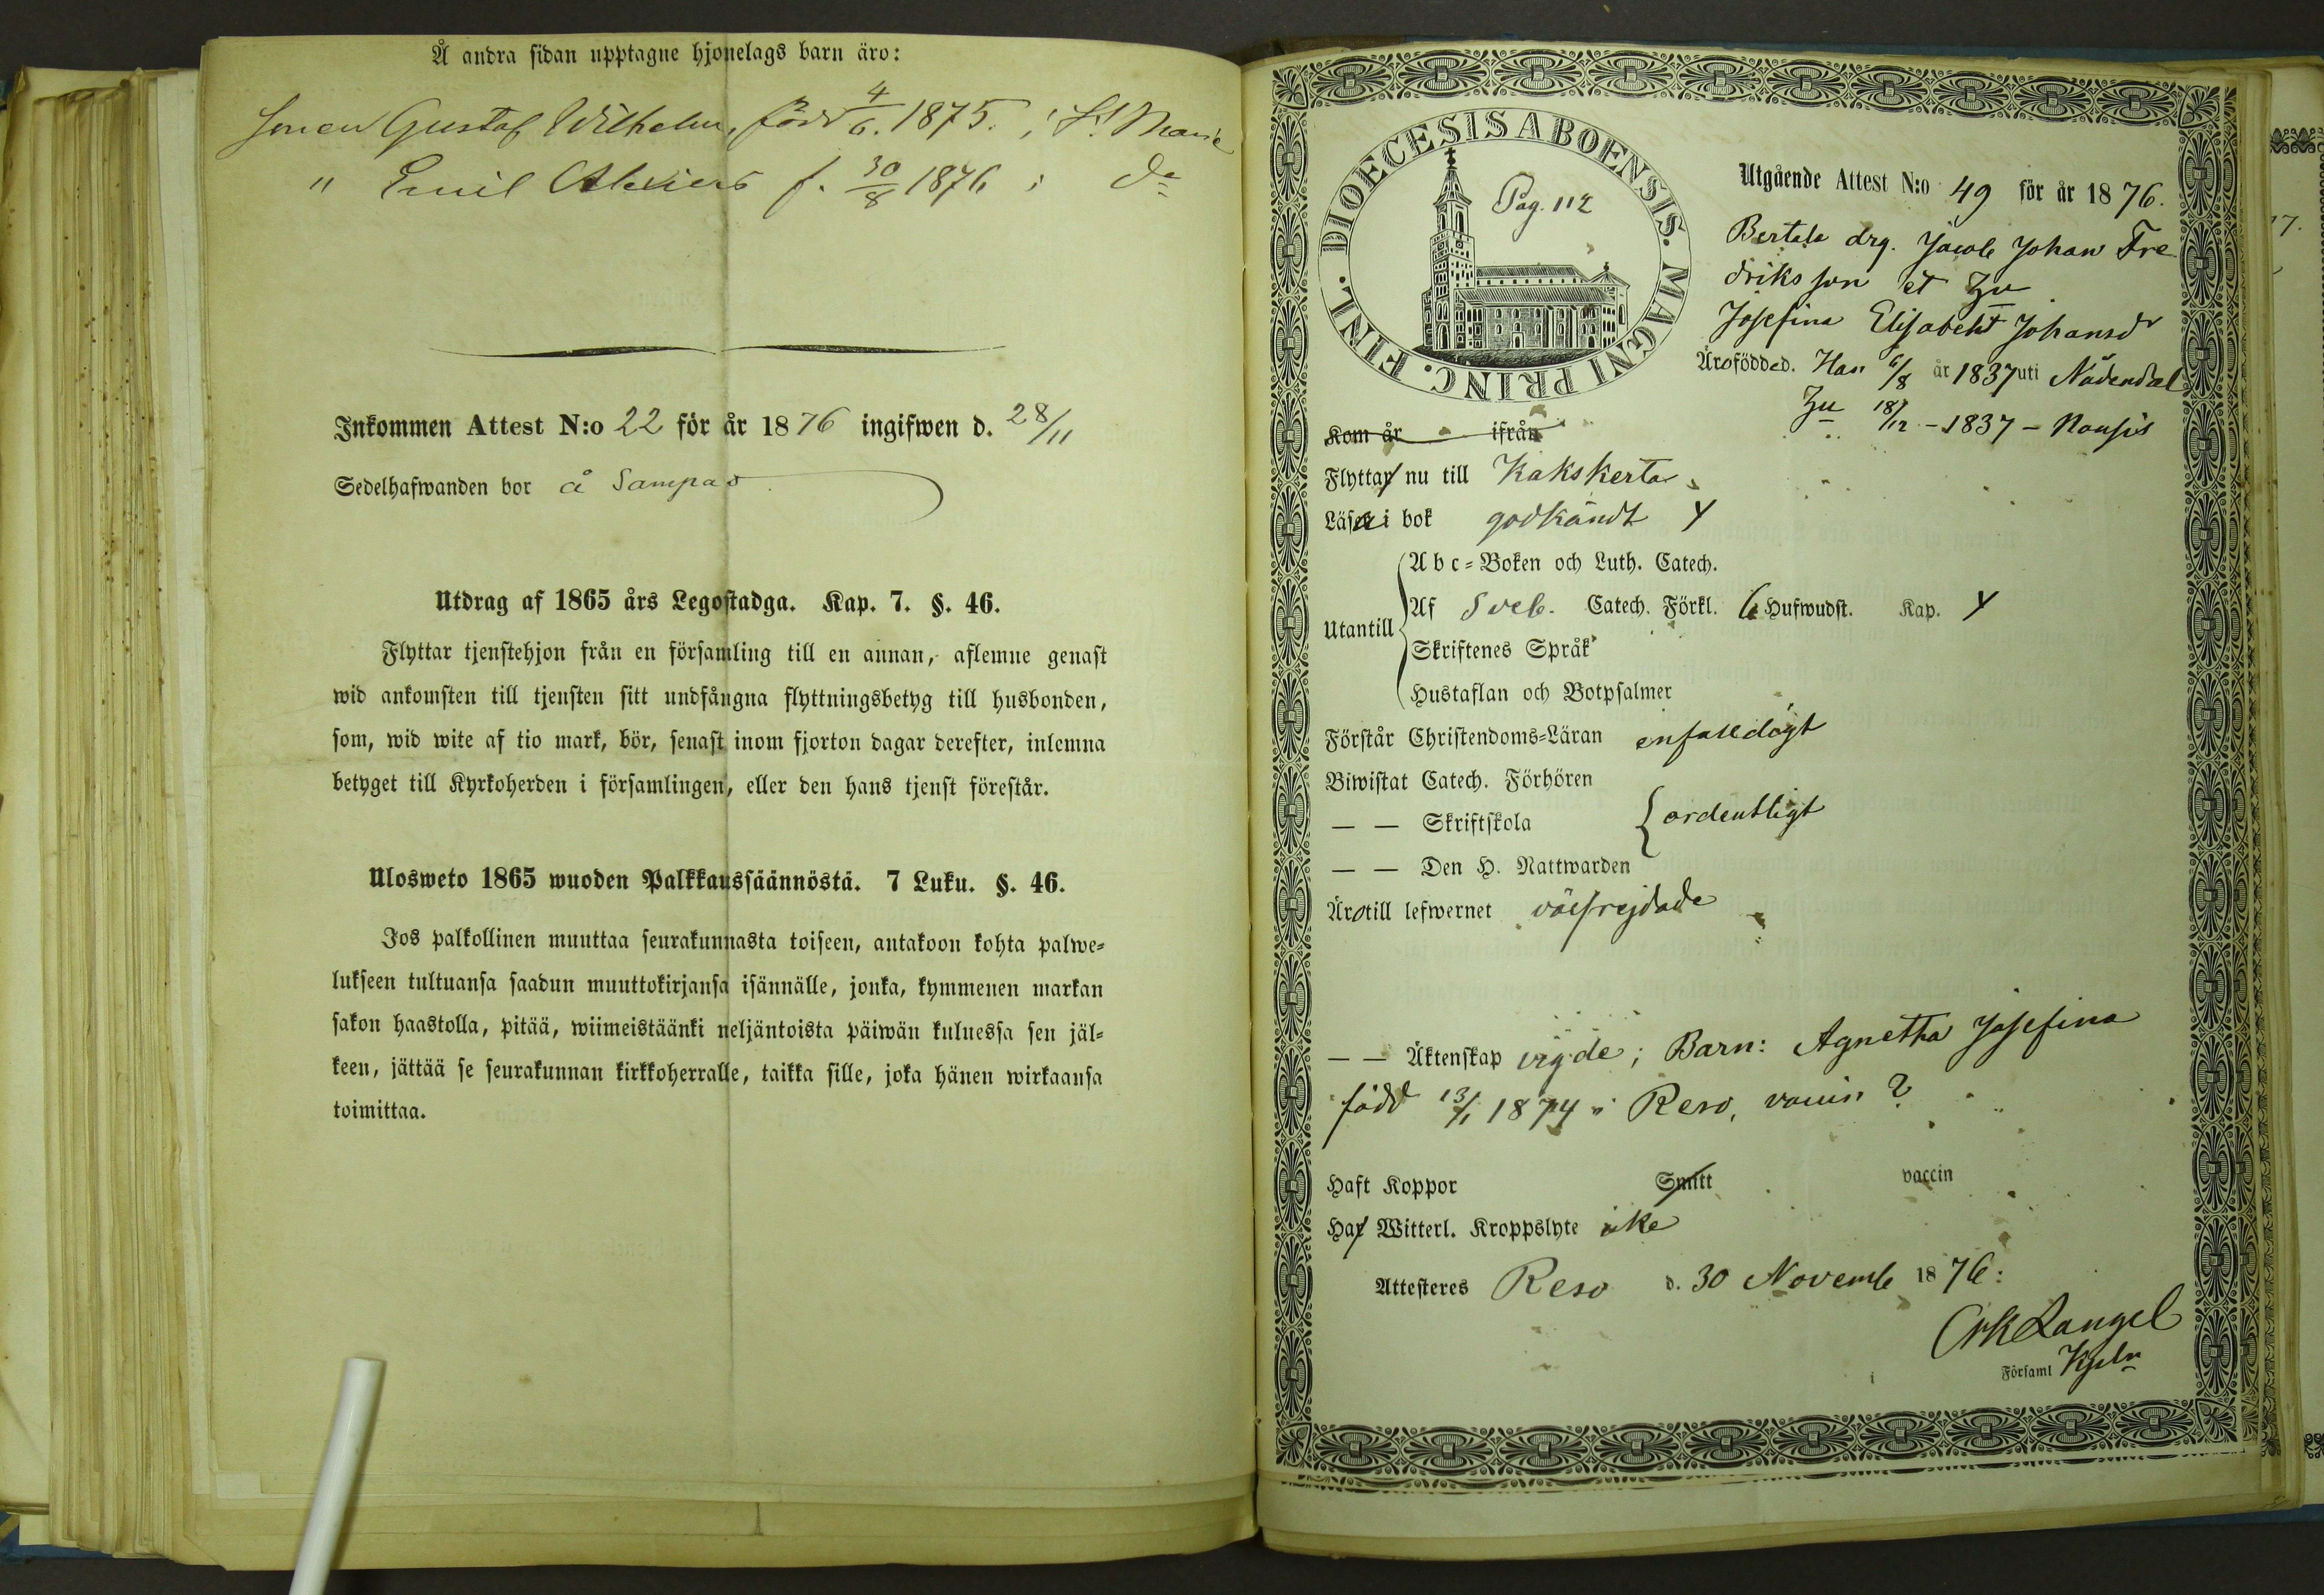 Å andra sidan upptagne hjonelags barn äro:
Sonen Gustaf Wilhelm, född 4/6. 1875. i St Marie
" Emil Alexius f. 30/8 1876 i do
Inkommen Attest N:o 22 för år 1876 ingifwen d. 28/11
Sedelhafwanden bor å Sampao
Utdrag af 1865 års Legostadga. Kap. 7. §. 46.
Flyttar tjenstehjon från en församling till en annan, aflemne genast
wid ankomsten till tjensten sitt undfångna flyttningsbetyg till husbonden,
som, wid wite af tio mark, bör, senast inom fjorton dagar derefter, inlemna
betyget till Kyrkoherden i församlingen, eller den hans tjenst förestår.
Ulosweto 1865 wuoden Palkkaussäännöstä. 7 Luku. §. 46.
Jos palkollinen muuttaa seurakunnasta toiseen, antakoon kohta palwe=
lukseen tultuansa saadun muuttokirjansa isännälle, jonka, kymmenen markan
sakon haastolla, pitää, wiimeistäänki neljäntoista päiwän kuluessa sen jäl=
keen, jättää se seurakunnan kirkkoherralle, taikka sille, joka hänen wirkaansa
toimittaa.
DIOECESIS ABOENSIS. MAGNI PRINC. FINL.
Pag. 112
Utgående Attest N:o 49 för år 1876.
Bertala drg. Jacob Johan Fre
driksson et hu
Josefina Elisabeht Johansdr
Äro födde d. Han 6/8 år 1837 uti Nådendal
hu 18/12 - 1837 - Nousis
Kom år ifrån
Flyttar nu till Kakskerta
Läsa i bok godkändt
A b c = Boken och Luth. Catech.
Utantill
Af Sveb. Catech. Förkl. 6 Hufwudst. Kap.
Skriftenes Språk
Hustaflan och Botpsalmer
Förstår Christendoms=Läran enfaldigt
Biwistat Catech. Förhören
— — Skriftskola ordentligt
— — Den H. Nattwarden
Äro till lefwernet välfrejdade
— — Äktenskap vigde; Barn: Agnetha Josefina
född 13/1 1874 i Reso, vaccin ?
Haft Koppor Smitt vaccin
Haf Witterl. Kroppslyte icke
Attesteres Reso d. 30 Novemb 1876:
Langel
Församl Kpln